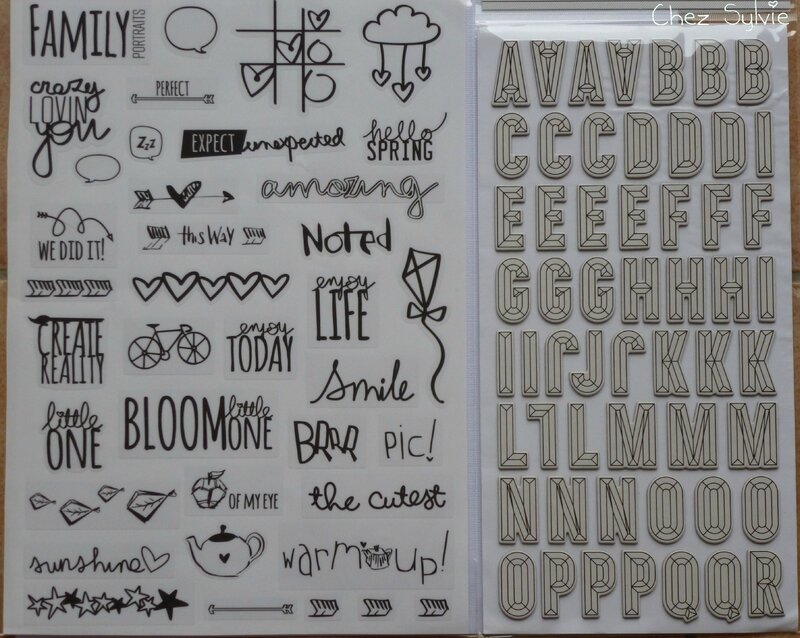 Chez Sylvie
FAMILY
PORTRAITS
crazy
LOVIN
you
PERFECT
Zzz
EXPECT unexpected
hello
SPRING
amazing
WE DID IT!
this WAY
Noted
enjoy
LIFE
CREATE
REALITY
enjoy
TODAY
Smile
little
ONE
BLOOM
little
ONE
BRRR
PIC!
OF MY EYE
the cutest
sunshine
warm up!
A A A A B B B
C C C D D D I
E E E E F F F
G G G H H H I
I I J J K K K
L L L M M M
N N N O O O
O P P P Q Q R